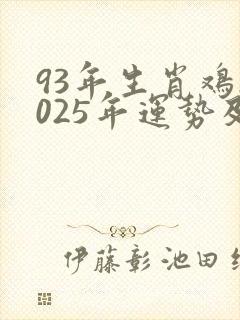 93年生肖鸡
025年運勢及
伊藤彰池田